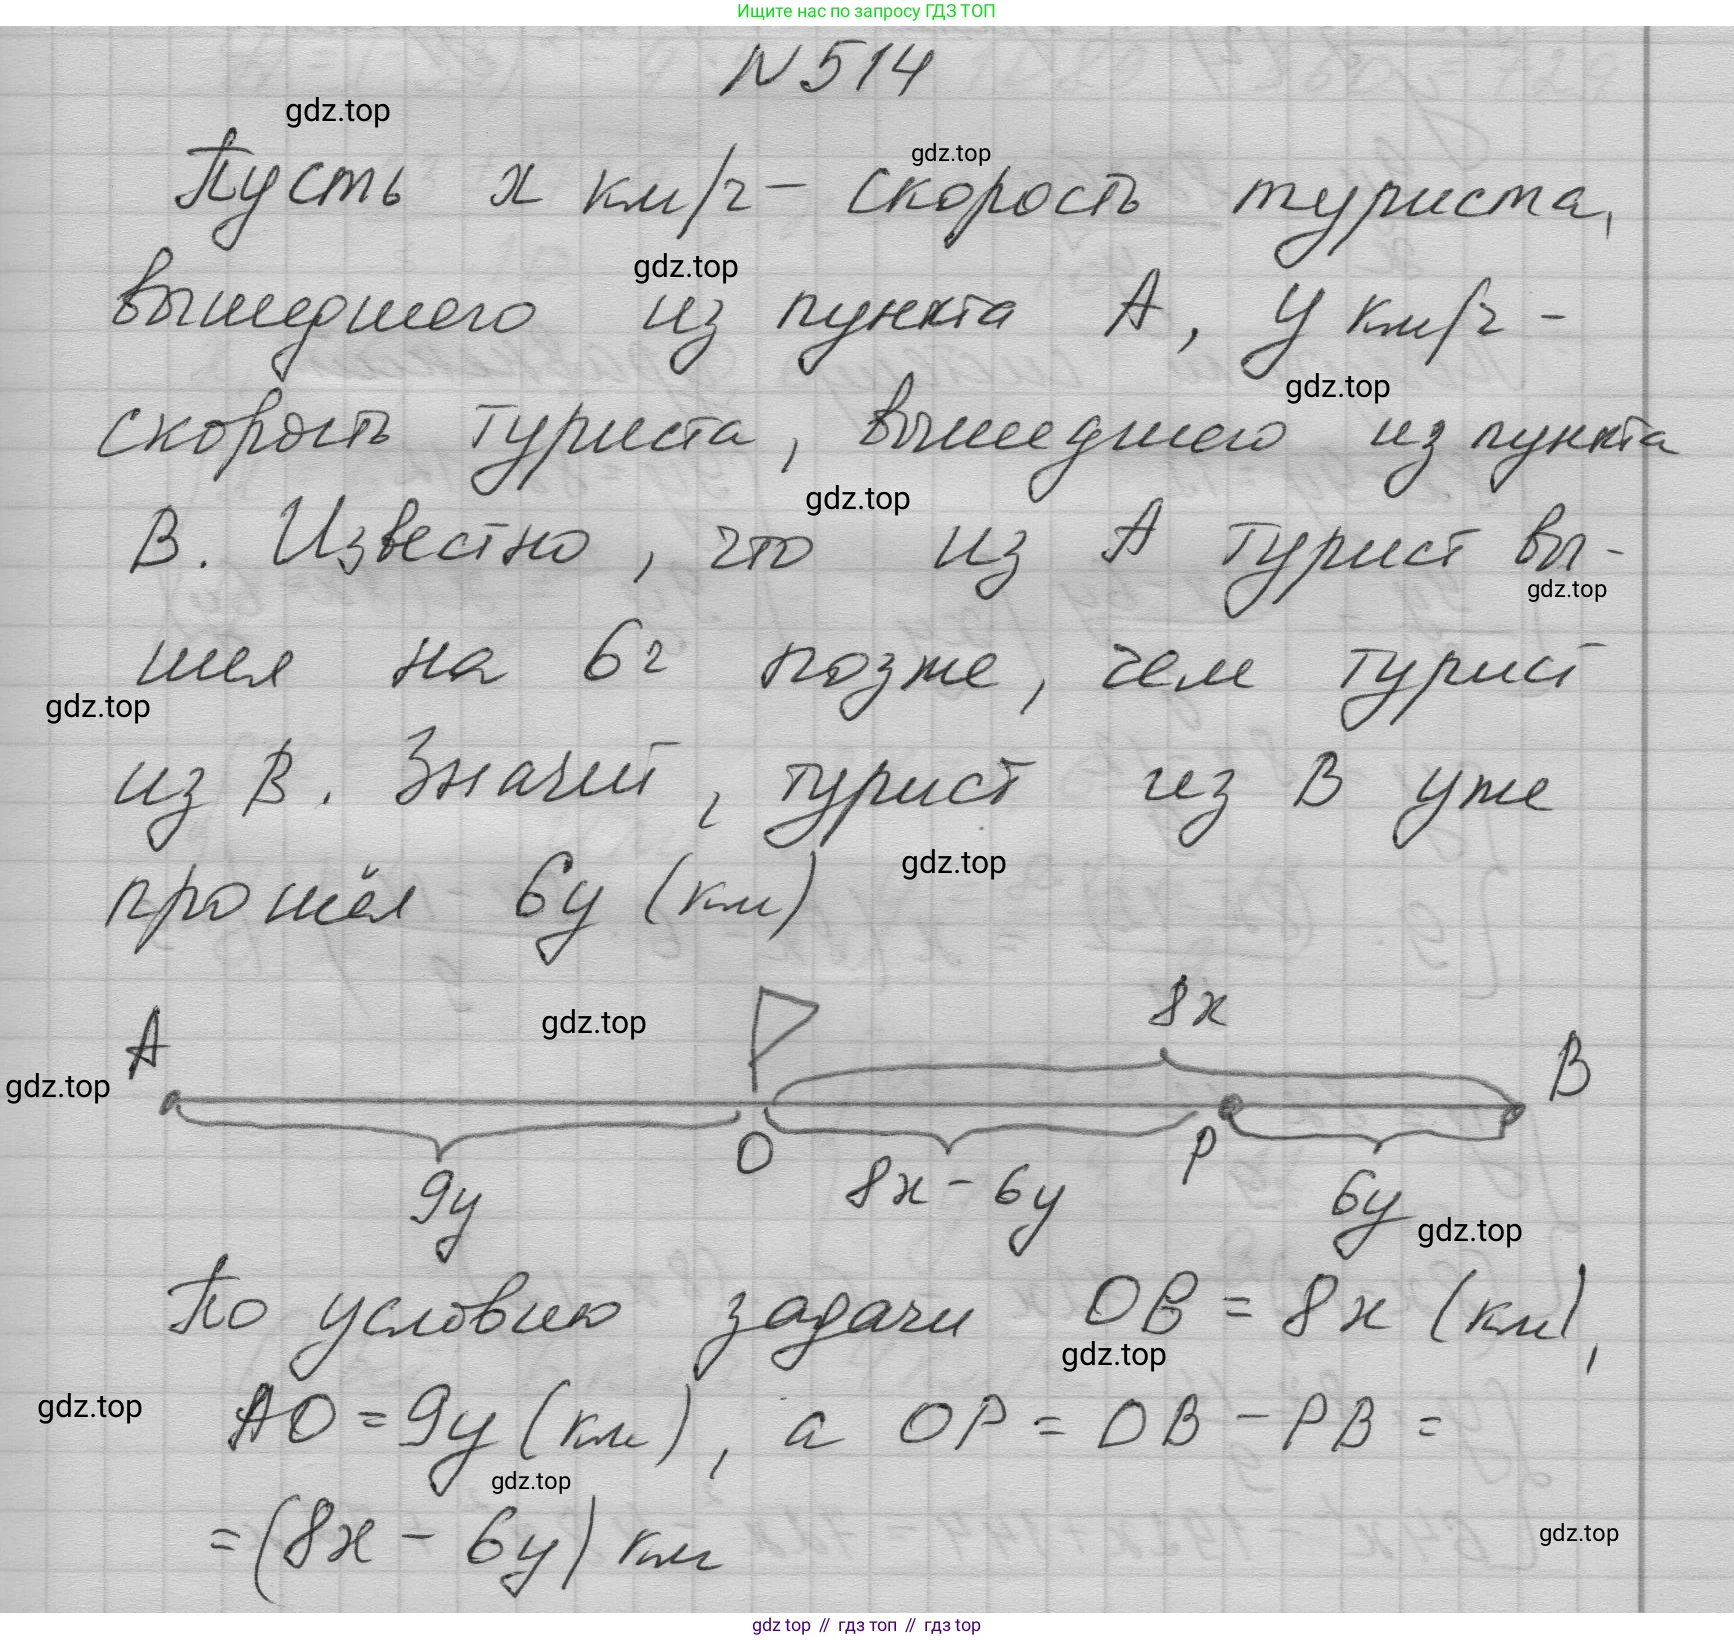 Ищите нас по запросу ГДЗ ТОП
N 514
gdz.top
Пусть x км/ч - скорость туриста,
gdz.top
вышедшего из пункта A, y км/ч -
gdz.top
gdz.top
скорость туриста, вышедшего из пункта
gdz.top
B. Известно, что из A турист вы-
gdz.top
шел на 6ч позже, чем турист
gdz.top
из B. Значит, турист из B уже
gdz.top
прошёл 6y (км)
8x
gdz.top
A
B
gdz.top
O
P
9y
8x - 6y
6y
gdz.top
По условию задачи OB = 8x (км),
gdz.top
AO = 9y (км), а OP = OB - PB =
gdz.top
gdz.top
= (8x - 6y) км
gdz.top
gdz top // гдз топ // gdz top